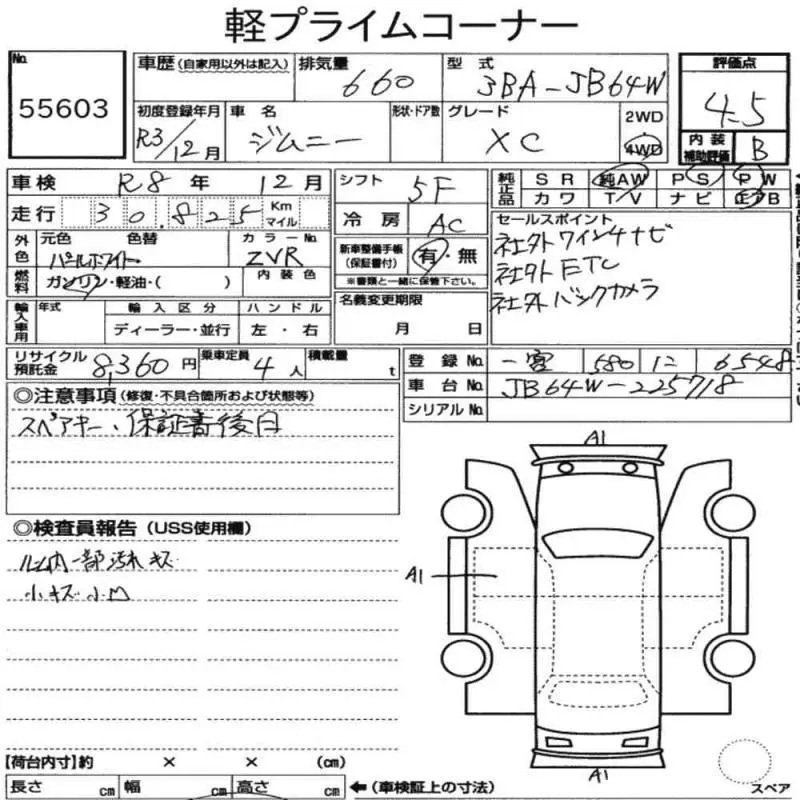 軽プライムコーナー
No. 55603
車歴(自家用以外は記入) 排気量 660 型式 3BA-JB64W 評価点 4.5
初度登録年月 R3/12月 車名 ジムニー 形状・ドア数 グレード XC 2WD 4WD 内装補助評価 B
車検 R8年 12月 シフト 5F 純正品 SR 純AW PS PW
カワ TV ナビ エアB
走行 30,825 Km マイル 冷房 AC
外色 元色 パールホワイト 色替 カラーNo. ZVR 新車整備手帳(保証書付) 有・無
セールスポイント
社外ワインナビ
社外ETC
社外バックカメラ
燃料 ガソリン・軽油・( ) 内装色 ※書類と一緒に保管下さい。
輸入車用 年式 輸入区分 ハンドル 名義変更期限
ディーラー・並行 左・右 月 日
リサイクル預託金 8,360円 乗車定員 4人 積載量 t 登録No. 580 12 6548
車台No. JB64W-225718
シリアルNo.
◎注意事項(修復・不具合箇所および状態等)
スペアキー、保証書後日
◎検査員報告(USS使用欄)
ルーム内一部汚れキズ
小キズ小凹
A1
A1
A1
【荷台内寸】約 × × (cm)
長さ cm 幅 cm 高さ cm ←(車検証上の寸法)
スペア